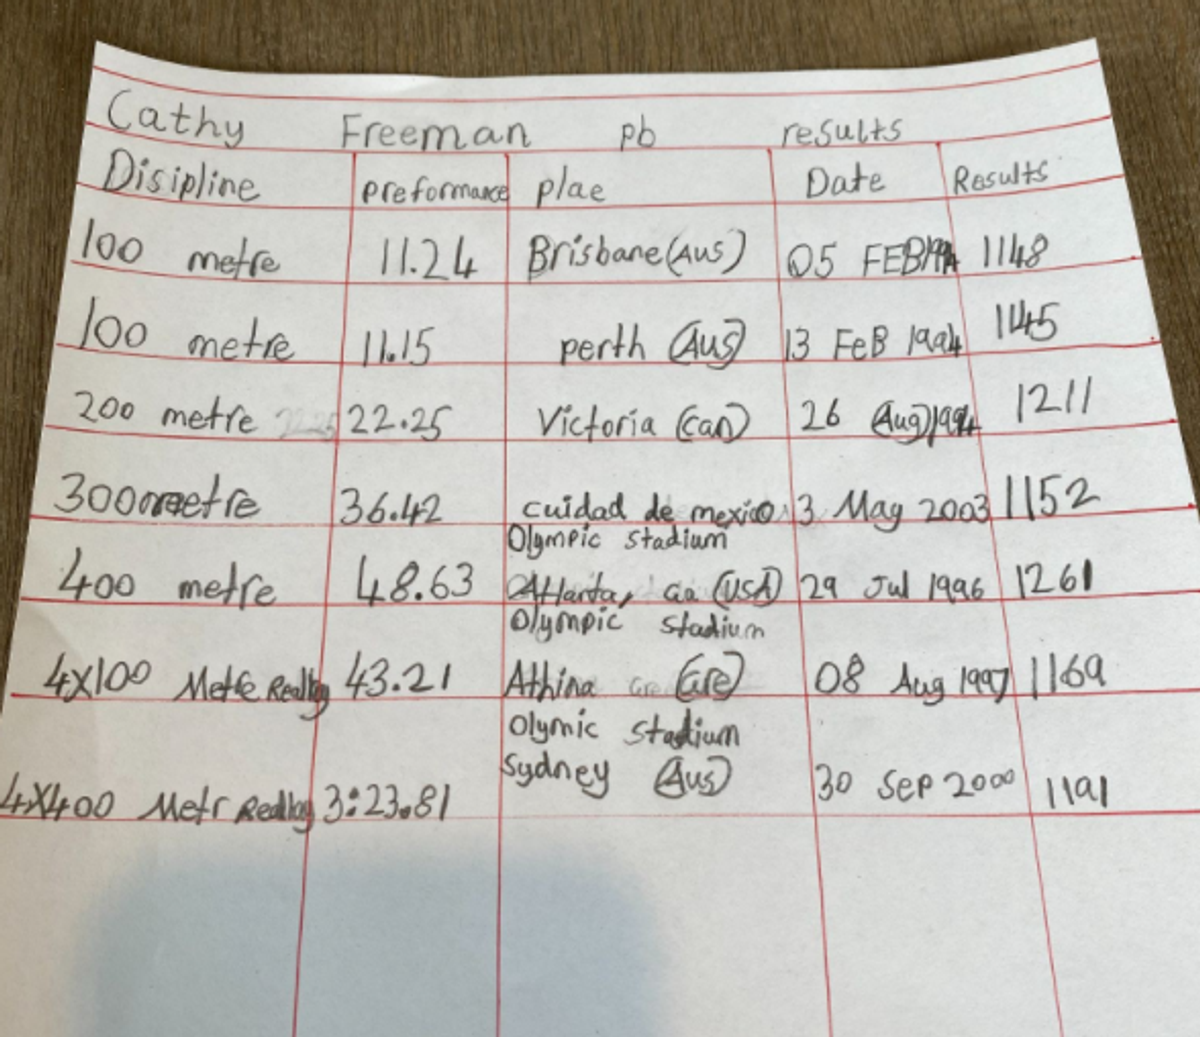 Cathy Freeman pb results
Disipline preformance plae Date Results
100 metre 11.24 Brisbane (Aus) 05 FEB 1994 1148
100 metre 11.15 perth (Aus) 13 FeB 1994 1145
200 metre 22.25 Victoria (can) 26 (Aug) 1994 1211
300 metre 36.42 cuidad de mexico 3 May 2003 1152
Olympic stadium
400 metre 48.63 Atlanta, Ga (USA) 29 Jul 1996 1261
Olympic stadium
4x100 Metre 43.21 Athina (Gre) 08 Aug 1997 1169
Olymic stadium
Sydney (Aus)
4x400 Metr 3:23.81 30 Sep 2000 1191